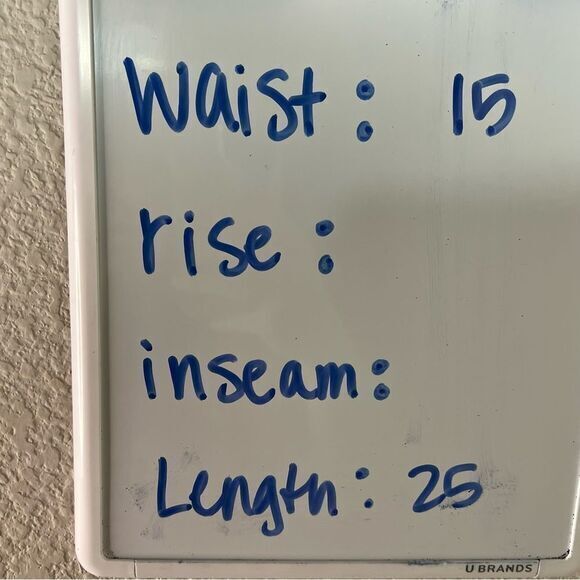 Waist: 15
rise:
inseam:
Length: 25
U BRANDS